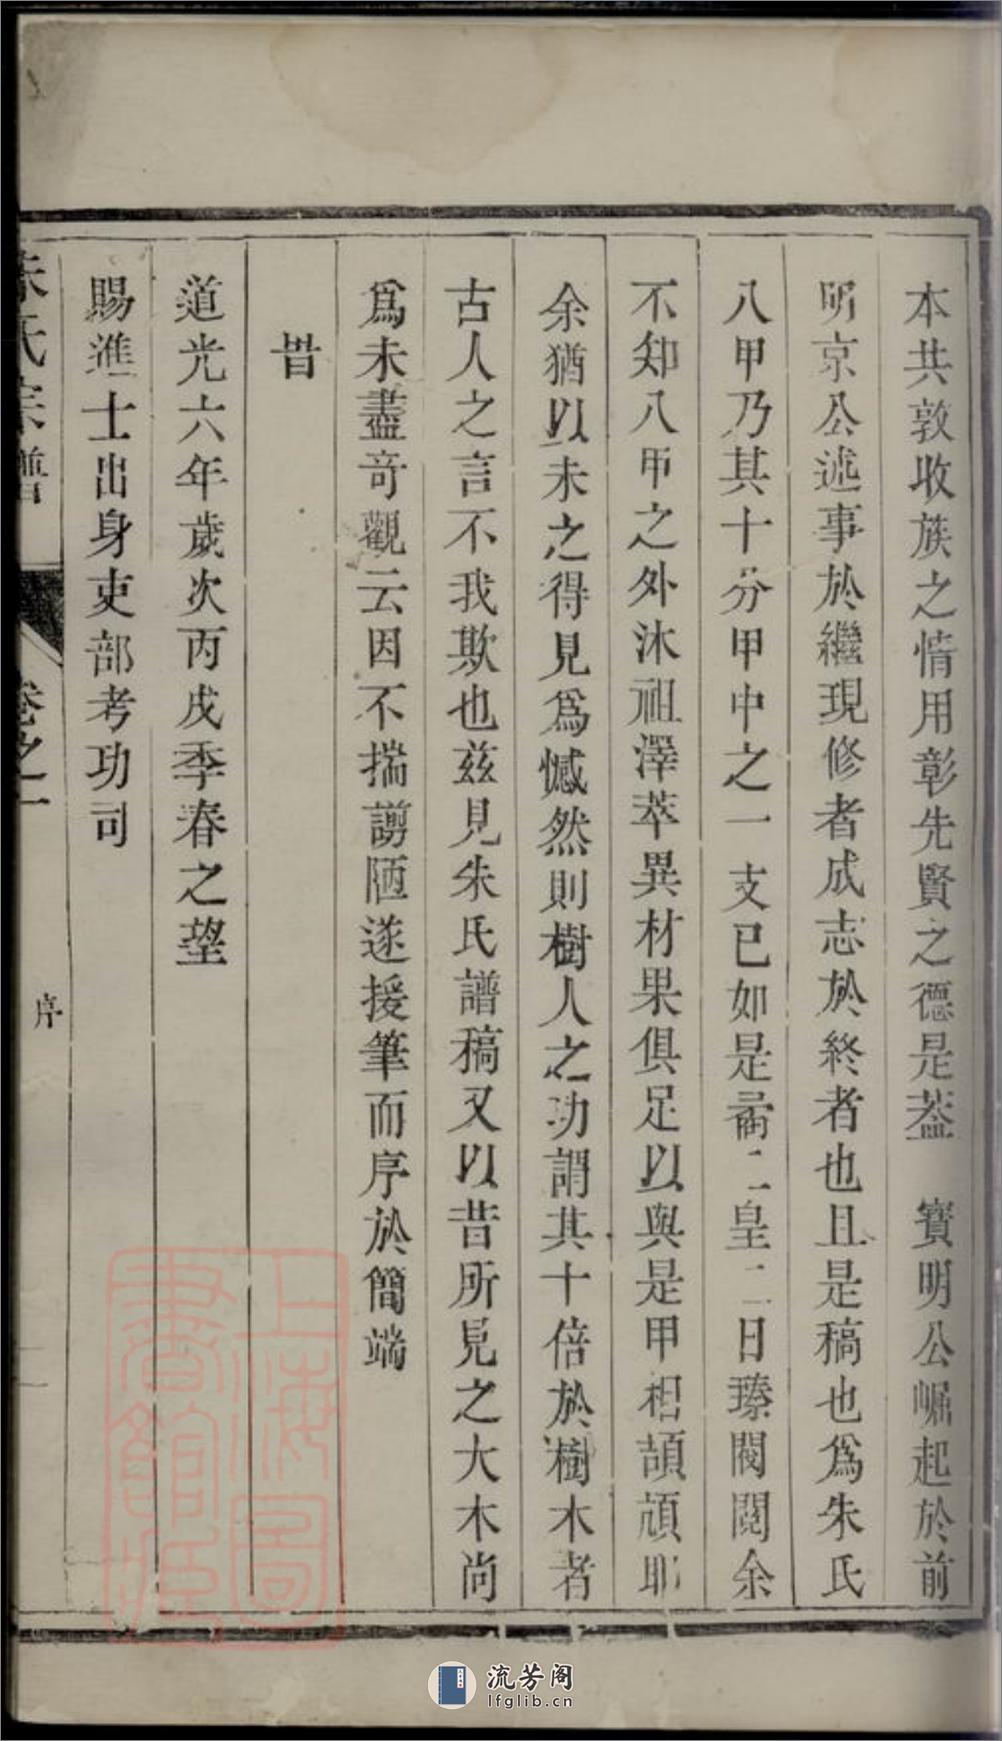 本共敦收族之情用彰先賢之德是葢　寳明公崛起於前
明京公述事於繼現修者成志於終者也且是稿也爲朱氏
八甲乃其十分甲中之一支已如是矞二皇二日臻閥閱余
不知八甲之外沐祖澤萃異材果俱足以與是甲相頡頏耶
余猶以未之得見爲憾然則樹人之功謂其十倍於樹木者
古人之言不我欺也兹見朱氏譜稿又以昔所見之大木尚
爲未盡奇觀云因不揣謭陋遂援筆而序於簡端
旹
道光六年歲次丙戌季春之望
賜進士出身吏部考功司
朱氏宗譜　卷之一　序
上海圖書館藏
流芳阁
lfglib.cn